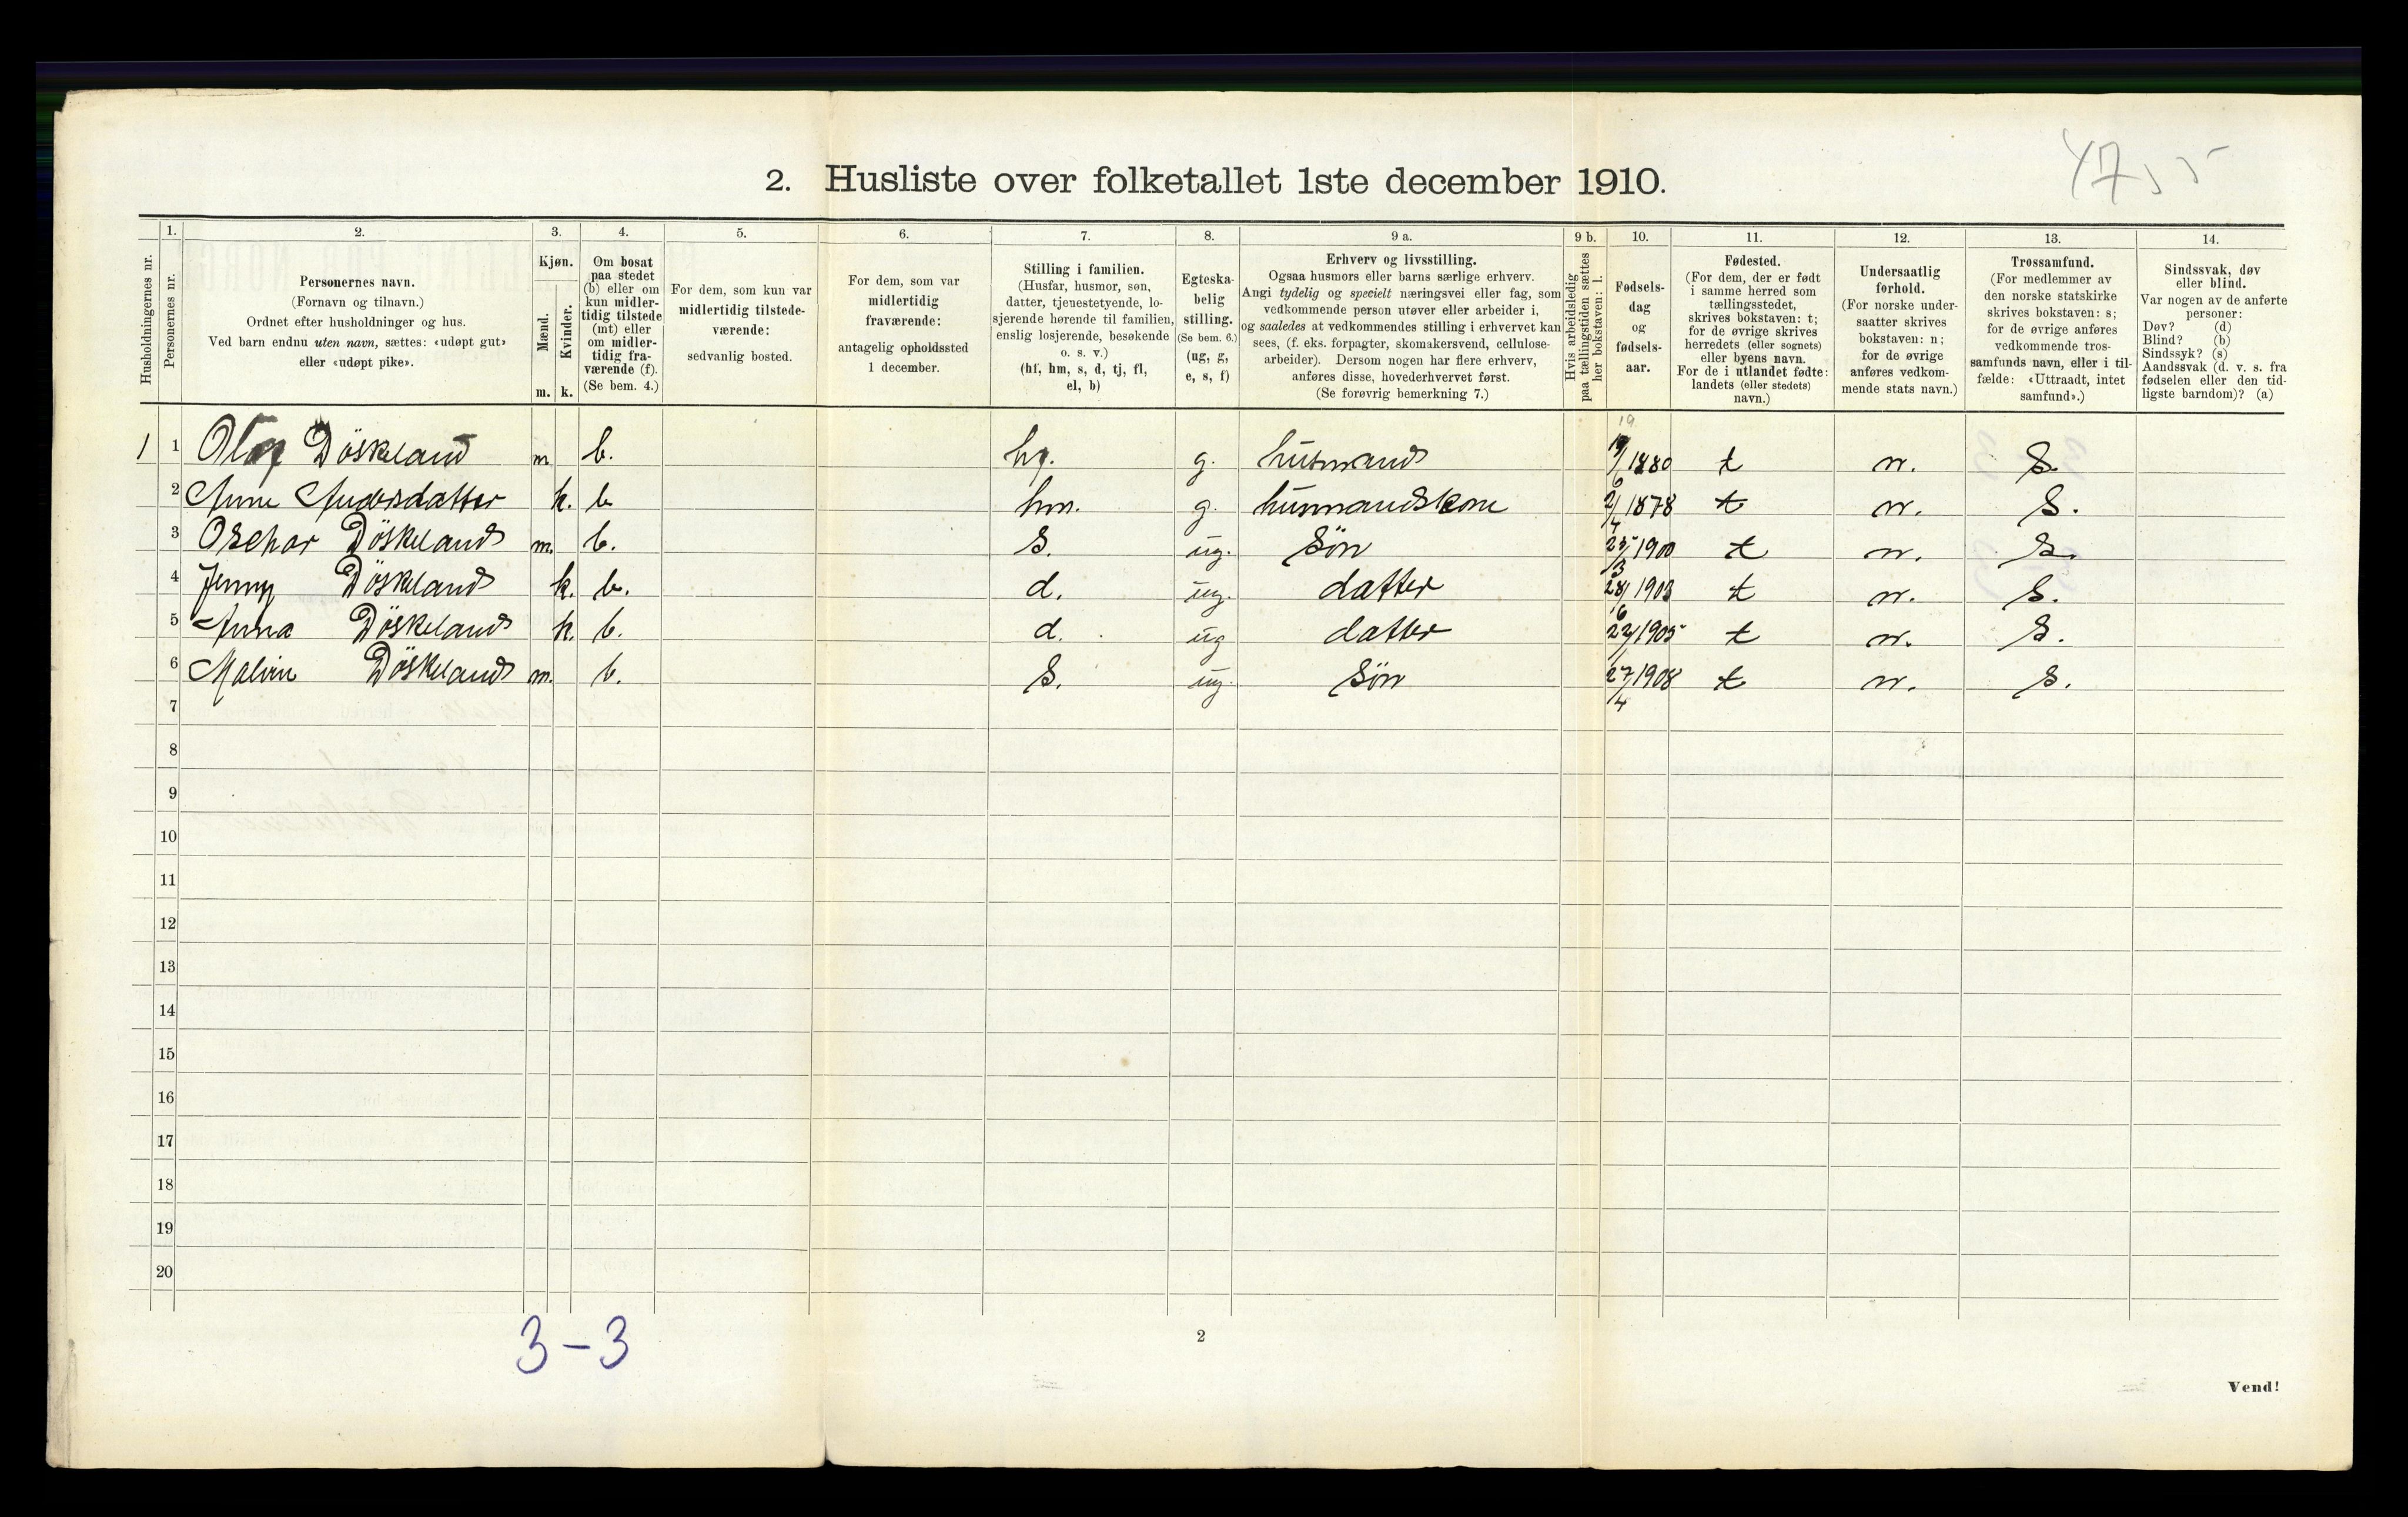 4755
2. Husliste over folketallet 1ste december 1910.
Husholdningernes nr.
1.
Personernes nr.
2.
Personernes navn.
(Fornavn og tilnavn.)
Ordnet efter husholdninger og hus.
Ved barn endnu uten navn, sættes: «udøpt gut»
eller «udøpt pike».
3.
Kjøn.
Mænd.
Kvinder.
m. k.
4.
Om bosat
paa stedet
(b) eller om
kun midler-
tidig tilstede
(mt) eller
om midler-
tidig fra-
værende (f).
(Se bem. 4.)
5.
For dem, som kun var
midlertidig tilstede-
værende:
sedvanlig bosted.
6.
For dem, som var
midlertidig
fraværende:
antagelig opholdssted
1 december.
7.
Stilling i familien.
(Husfar, husmor, søn,
datter, tjenestetyende, lo-
sjerende hørende til familien,
enslig losjerende, besøkende
o. s. v.)
(hf, hm, s, d, tj, fl,
el, b)
8.
Egteska-
belig
stilling.
(Se bem. 6.)
(ug, g,
e, s, f)
9 a.
Erhverv og livsstilling.
Ogsaa husmors eller barns særlige erhverv.
Angi tydelig og specielt næringsvei eller fag, som
vedkommende person utøver eller arbeider i,
og saaledes at vedkommendes stilling i erhvervet kan
sees, (f. eks. forpagter, skomakersvend, cellulose-
arbeider). Dersom nogen har flere erhverv,
anføres disse, hovederhvervet først.
(Se forøvrig bemerkning 7.)
9 b.
Hvis arbeidsledig
paa tællingstiden sættes
her bokstaven: l.
10.
Fødsels-
dag
og
fødsels-
aar.
11.
Fødested.
(For dem, der er født
i samme herred som
tællingsstedet,
skrives bokstaven: t;
for de øvrige skrives
herredets (eller sognets)
eller byens navn.
For de i utlandet fødte:
landets (eller stedets)
navn.)
12.
Undersaatlig
forhold.
(For norske under-
saatter skrives
bokstaven: n;
for de øvrige
anføres vedkom-
mende stats navn.)
13.
Trossamfund.
(For medlemmer av
den norske statskirke
skrives bokstaven: s;
for de øvrige anføres
vedkommende tros-
samfunds navn, eller i til-
fælde: «Uttraadt, intet
samfund».)
14.
Sindssvak, døv
eller blind.
Var nogen av de anførte
personer:
Døv? (d)
Blind? (b)
Sindssyk? (s)
Aandssvak (d. v. s. fra
fødselen eller den tid-
ligste barndom)? (a)
1 1 Olaf Döskeland m b. hf. g. husmand 19/6 1880 t n. S.
2 Anne Andersdatter k. b hm. g. husmandskone 2/4 1878 t n. S.
3 Oschar Döskeland m. b. S. ug. Sön 25/3 1900 t n. S.
4 Jenny Döskeland k. b. d. ug. datter 28/6 1903 t n. S.
5 Anna Döskeland k. b. d. ug datter 22/1 1905 t n. S.
6 Malvin Döskeland m. b. S. ug. Sön 27/4 1908 t n. S.
7
8
9
10
11
12
13
14
15
16
17
18
19
20
3-3
2
Vend!